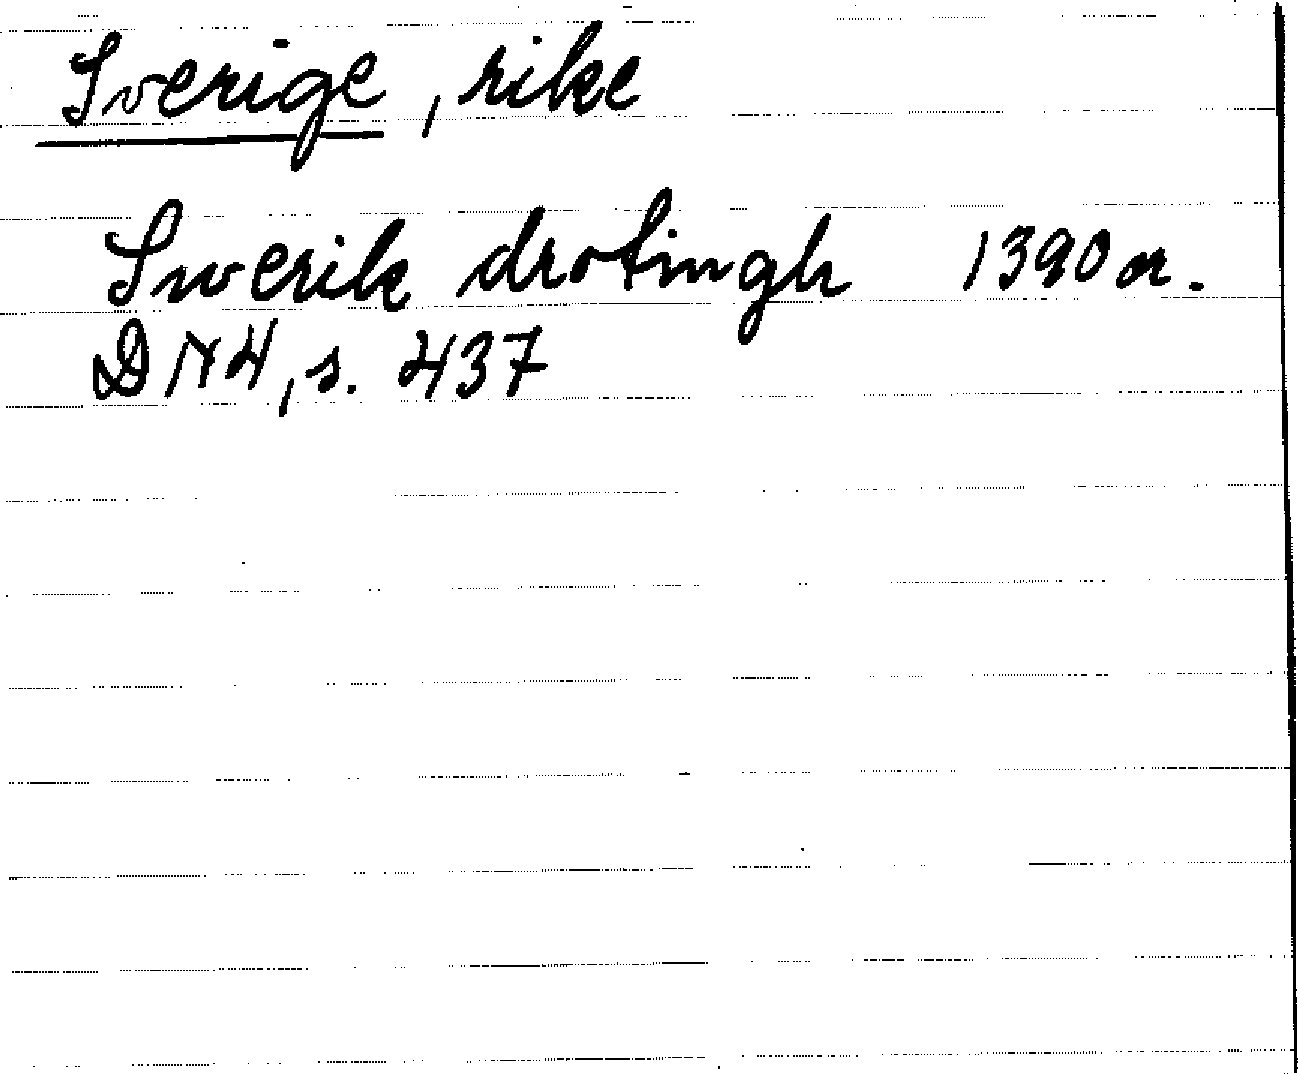 Sverige, rike
Swerik drotingh 1390 or.
DN4, s. 437